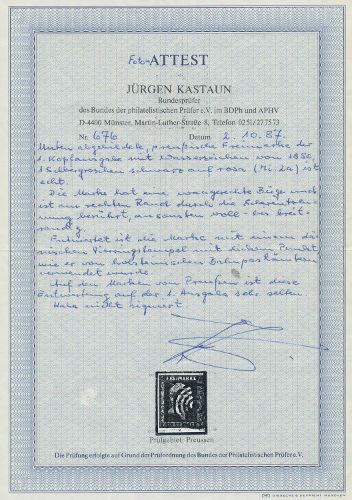 Foto-ATTEST
JÜRGEN KASTAUN
Bundesprüfer
des Bundes der philatelistischen Prüfer e.V. im BDPh und APHV
D-4400 Münster, Martin-Luther-Straße 8, Fernruf 0251/277573
Nr. 676 Datum 2.10.87.
Unten abgebildete, preußische Freimarke der
1. Kopfausgabe mit Wasserzeichen von 1850,
1 Silbergroschen schwarz auf rosa (Mi. 2a) ist
echt.
Die Marke hat eine waagerechte Büge und
ist am rechten Rand durch die Scherentren-
nung berührt, ansonsten voll- bis breit-
randig.
Entwertet ist die Marke mit einem dä-
nischen Vierringstempel mit dickem Punkt,
wie er von holsteinischen Bahnpostämtern
verwendet wurde.
Auf den Marken von Preußen ist diese
Entwertung auf der 1. Ausgabe sehr selten
Habe nicht signiert
FREIMARKE
Prüfgebiet: Preussen
Die Prüfung erfolgte auf Grund der Prüfordnung des Bundes der Philatelistischen Prüfer e.V.